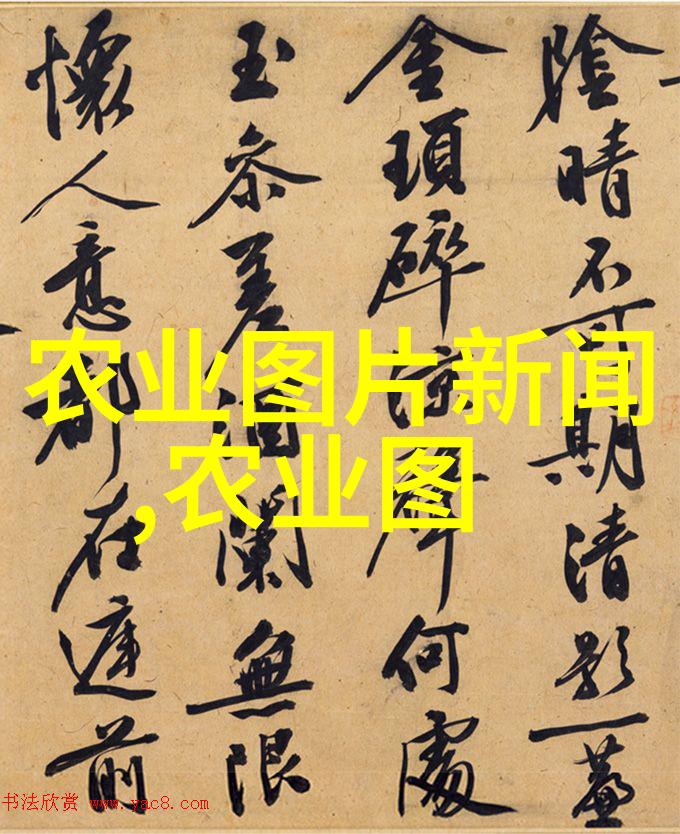 陰晴不可期清影一簾
金瑣碎涼聲何處
玉參差酒闌無限
懷人意都在庭前
农业图片新闻
,农业图
书法欣赏 www.yac8.com